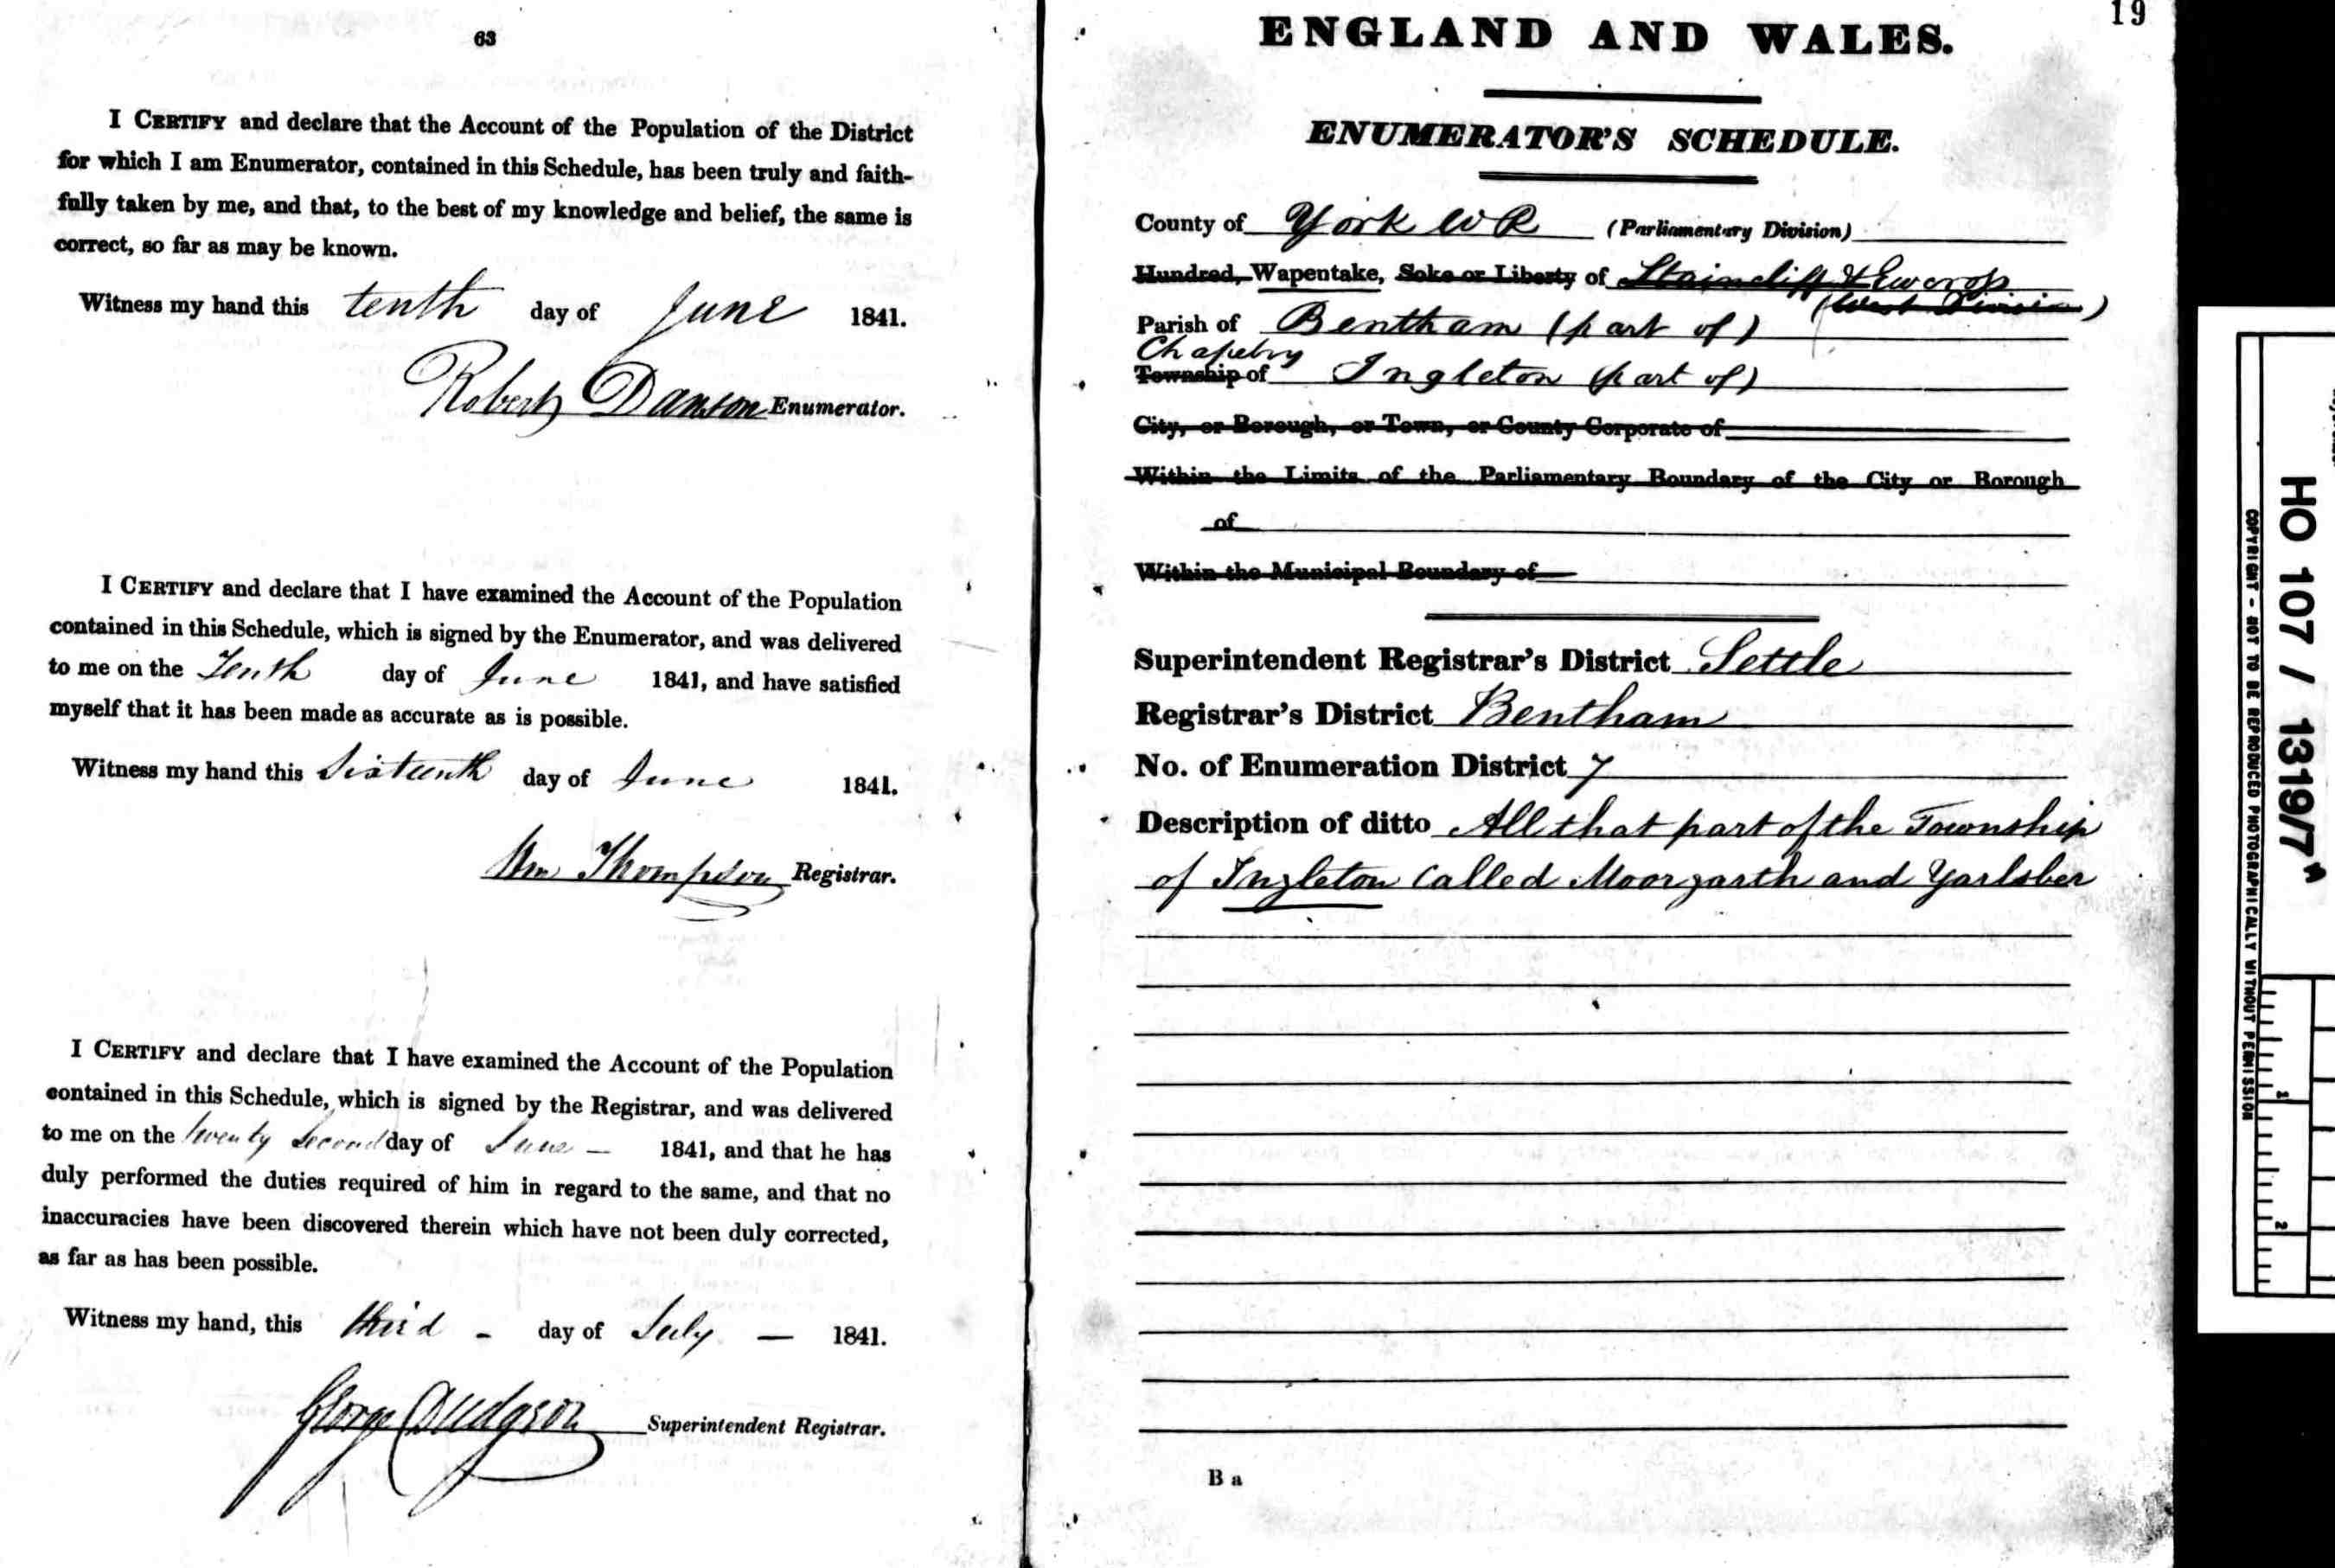 63
I CERTIFY and declare that the Account of the Population of the District
for which I am Enumerator, contained in this Schedule, has been truly and faith-
fully taken by me, and that, to the best of my knowledge and belief, the same is
correct, so far as may be known.
Witness my hand this tenth day of June 1841.
Robert Danson Enumerator.
I CERTIFY and declare that I have examined the Account of the Population
contained in this Schedule, which is signed by the Enumerator, and was delivered
to me on the Tenth day of June 1841, and have satisfied
myself that it has been made as accurate as is possible.
Witness my hand this Sixteenth day of June 1841.
Wm Thompson Registrar.
I CERTIFY and declare that I have examined the Account of the Population
contained in this Schedule, which is signed by the Registrar, and was delivered
to me on the twenty second day of June — 1841, and that he has
duly performed the duties required of him in regard to the same, and that no
inaccuracies have been discovered therein which have not been duly corrected,
as far as has been possible.
Witness my hand, this third - day of July — 1841.
George Superintendent Registrar.
19
ENGLAND AND WALES.
ENUMERATOR'S SCHEDULE.
County of York WR (Parliamentary Division)
Hundred, Wapentake, Soke or Liberty of Staincliff & Ewcross
(West Division)
Parish of Bentham (part of)
Chapelry
Township of Ingleton (part of)
City, or Borough, or Town, or County Corporate of
Within the Limits of the Parliamentary Boundary of the City or Borough
of
Within the Municipal Boundary of
Superintendent Registrar's District Settle
Registrar's District Bentham
No. of Enumeration District 7
Description of ditto All that part of the Township
of Ingleton Called Moorgarth and Yarlsber
B a
HO 107 / 1319/7
COPYRIGHT - NOT TO BE REPRODUCED PHOTOGRAPHICALLY WITHOUT PERMISSION
1
2